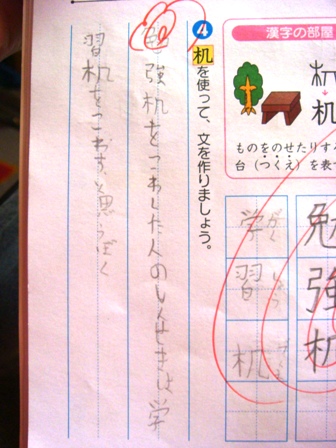 漢字の部屋
机
ものをのせたりす
台(つくえ)を表
勉強机
学習机
がくしゅう
❹机を使って、文を作りましょう。
勉強机をこわした人のしんせきは学
習机をこわすと思うぼく